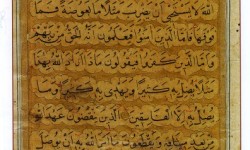 اللهَ لَا يَسْتَحْيِي أَنْ يَضْرِبَ مَثَلًا مَا بَعُوضَةً فَمَا
فَوْقَهَا فَأَمَّا الَّذِينَ آمَنُوا فَيَعْلَمُونَ أَنَّهُ الْحَقُّ مِنْ رَبِّهِمْ
وَأَمَّا الَّذِينَ كَفَرُوا فَيَقُولُونَ مَاذَا أَرَادَ اللهُ بِهَذَا
مَثَلًا يُضِلُّ بِهِ كَثِيرًا وَيَهْدِي بِهِ كَثِيرًا وَمَا
يُضِلُّ بِهِ إِلَّا الْفَاسِقِينَ الَّذِينَ يَنْقُضُونَ عَهْدَ اللهِ
مِنْ بَعْدِ مِيثَاقِهِ وَيَقْطَعُونَ مَا أَمَرَ اللهُ بِهِ أَنْ يُوصَلَ